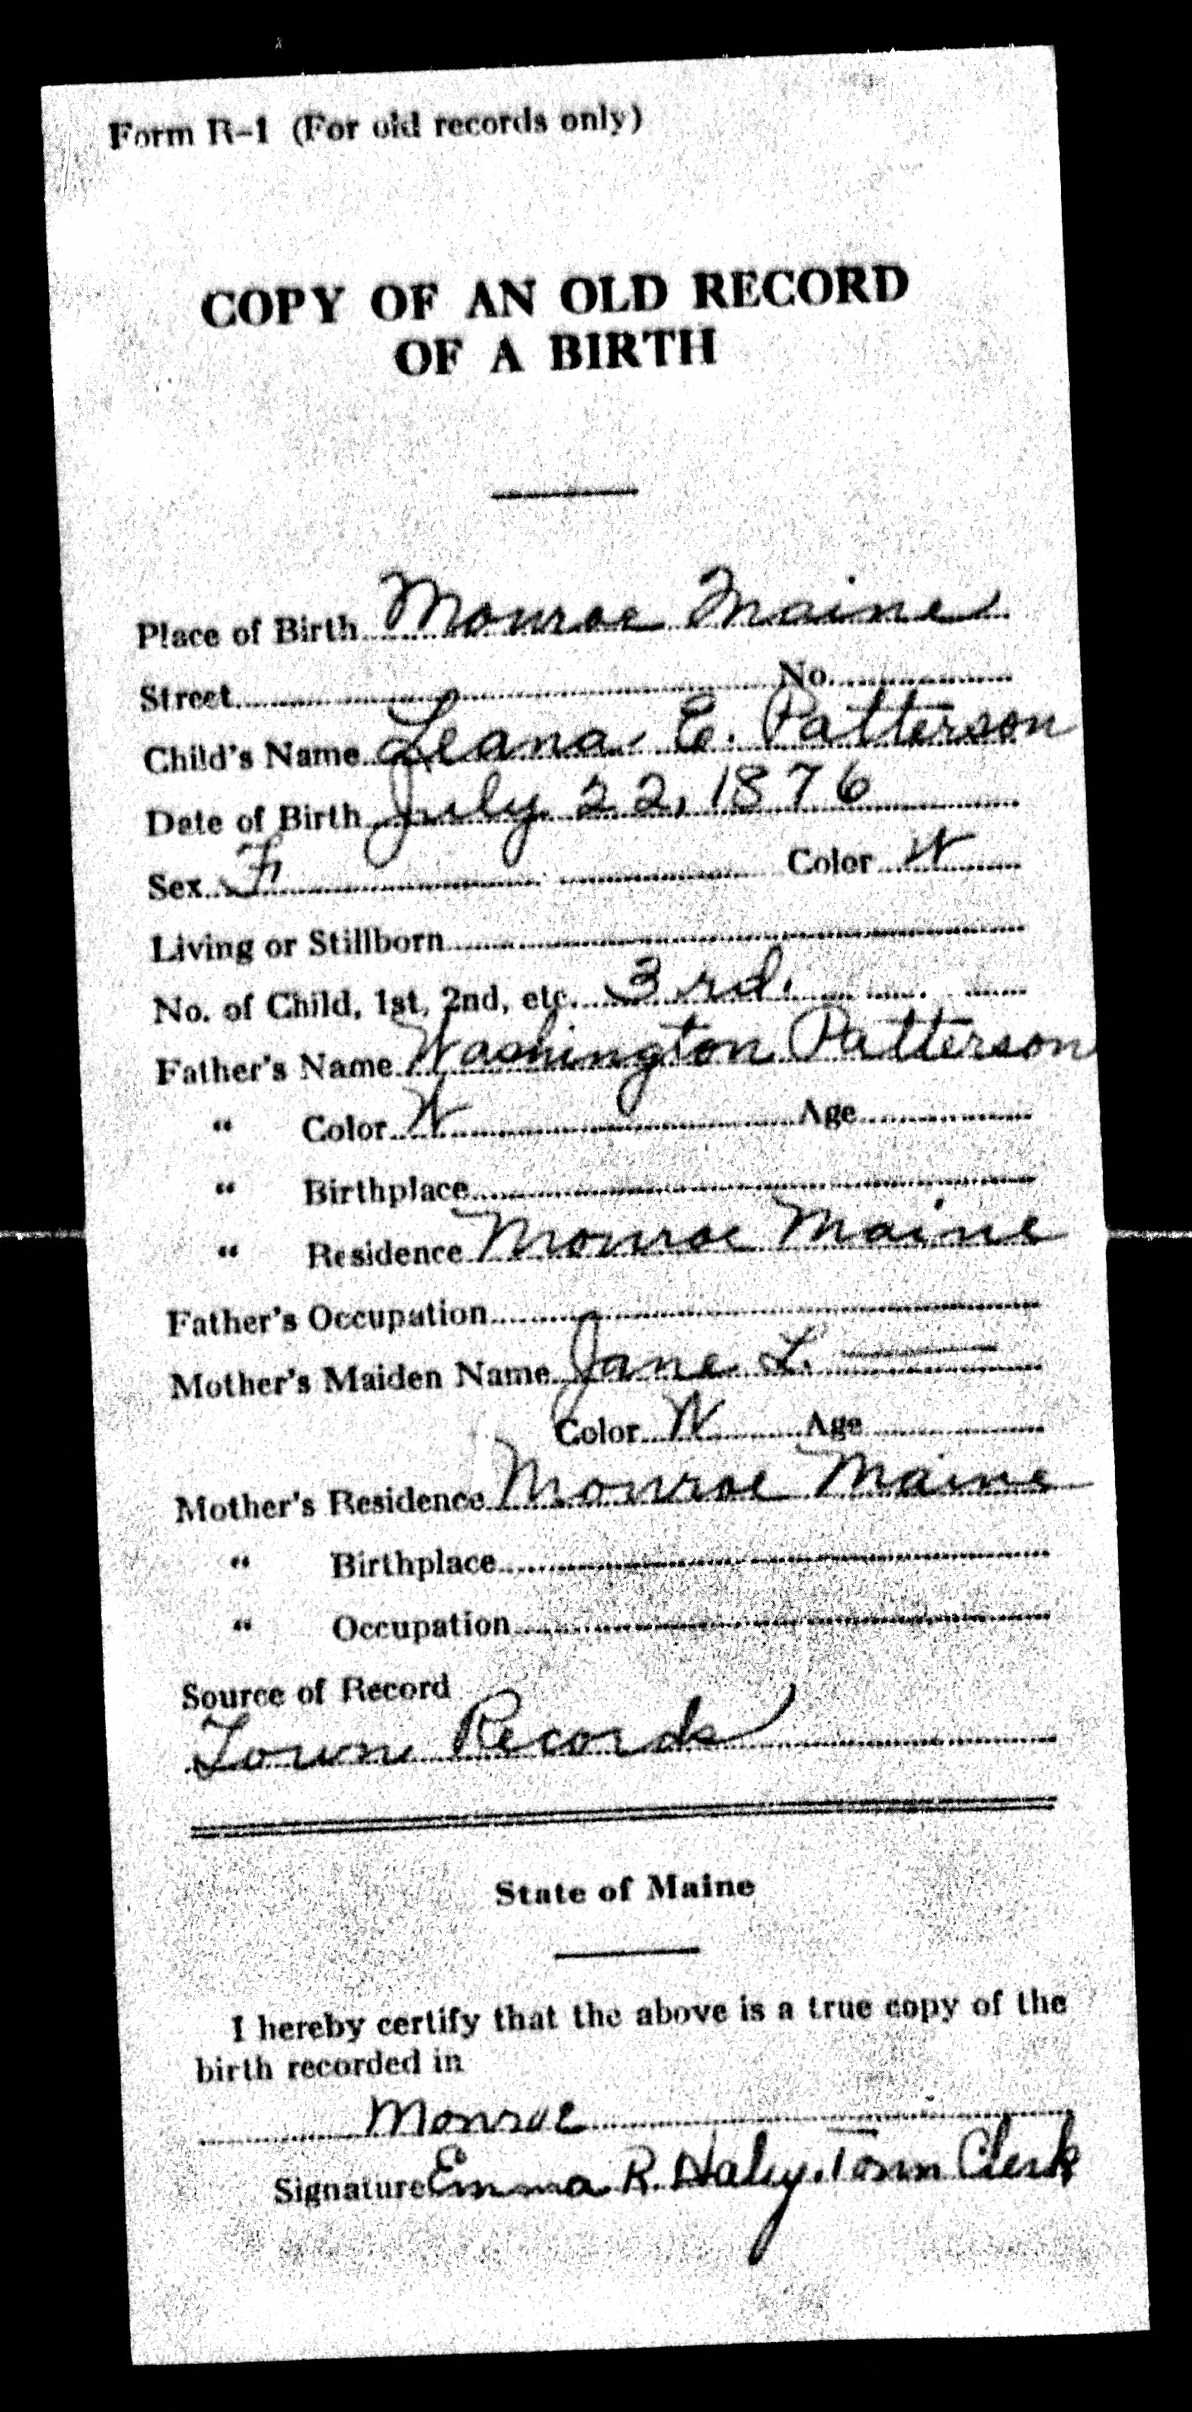 Form R-1 (For old records only)
COPY OF AN OLD RECORD
OF A BIRTH
Place of Birth Monroe Maine
Street No.
Child's Name Leana E. Patterson
Date of Birth July 22, 1876
Sex F Color W
Living or Stillborn
No. of Child, 1st, 2nd, etc. 3rd.
Father's Name Washington Patterson
" Color W Age
" Birthplace
" Residence Monroe Maine
Father's Occupation
Mother's Maiden Name Jane L. ——
Color W Age
Mother's Residence Monroe Maine
" Birthplace
" Occupation
Source of Record
Town Records
State of Maine
I hereby certify that the above is a true copy of the
birth recorded in
Monroe
Signature Emma R. Haley. Town Clerk